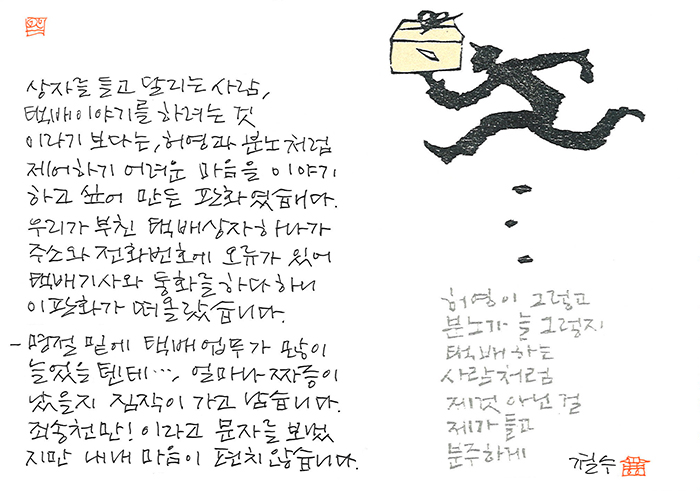 상자를 들고 달리는 사람,
택배이야기를 하려는 것
이라기 보다는, 허영과 분노처럼
제어하기 어려운 마음을 이야기
하고 싶어 만든 판화였습니다.
우리가 부친 택배상자 하나가
주소와 전화번호에 오류가 있어
택배기사와 통화를 하다 하니
이 판화가 떠올랐습니다.
- 명절 밑에 택배 업무가 많이
늘었을 텐데…, 얼마나 짜증이
났을지 짐작이 가고 남습니다.
죄송천만! 이라고 문자를 보냈
지만 내내 마음이 편치 않습니다.
허영이 그렇고
분노가 늘 그렇지
택배하는
사람처럼
제것 아닌 걸
제가 들고
분주하게
철수